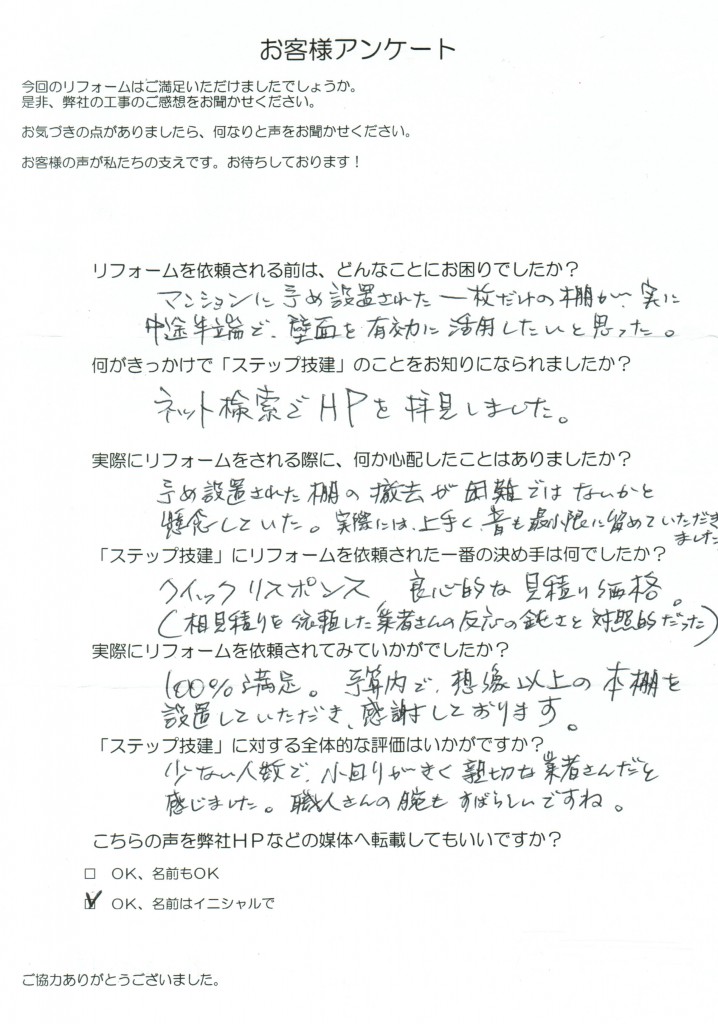 お客様アンケート
今回のリフォームはご満足いただけましたでしょうか。
是非、弊社の工事のご感想をお聞かせください。
お気づきの点がありましたら、何なりと声をお聞かせください。
お客様の声が私たちの支えです。お待ちしております！
リフォームを依頼される前は、どんなことにお困りでしたか？
マンションに予め設置された一枚だけの棚が、実に
中途半端で、壁面を有効に活用したいと思った。
何がきっかけで「ステップ技建」のことをお知りになられましたか？
ネット検索でHPを拝見しました。
実際にリフォームをされる際に、何か心配したことはありましたか？
予め設置された棚の撤去が困難ではないかと
懸念していた。実際には、上手く、音も最小限に留めていただき
ました
「ステップ技建」にリフォームを依頼された一番の決め手は何でしたか？
クイックリスポンス、良心的な見積り価格。
(相見積りを依頼した業者さんの反応の鈍さと対照的だった)
実際にリフォームを依頼されてみていかがでしたか？
100%満足。予算内で、想像以上の本棚を
設置していただき、感謝しております。
「ステップ技建」に対する全体的な評価はいかがですか？
少ない人数で、小回りがきく親切な業者さんだと
感じました。職人さんの腕もすばらしいですね。
こちらの声を弊社ＨＰなどの媒体へ転載してもいいですか？
□ OK、名前もOK
☑ OK、名前はイニシャルで
ご協力ありがとうございました。